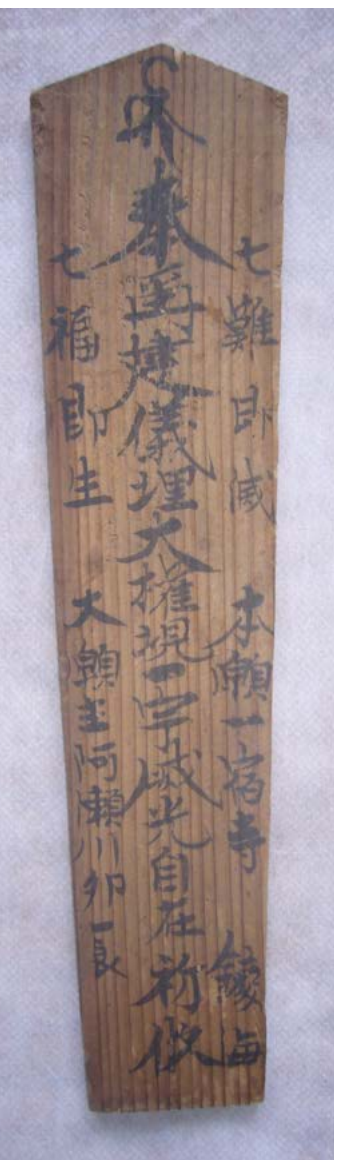 七難即滅　本願一宿寺
奉再建儀理大権現一宇威光自在祈攸
七福即生　大願主阿瀬川卯一長